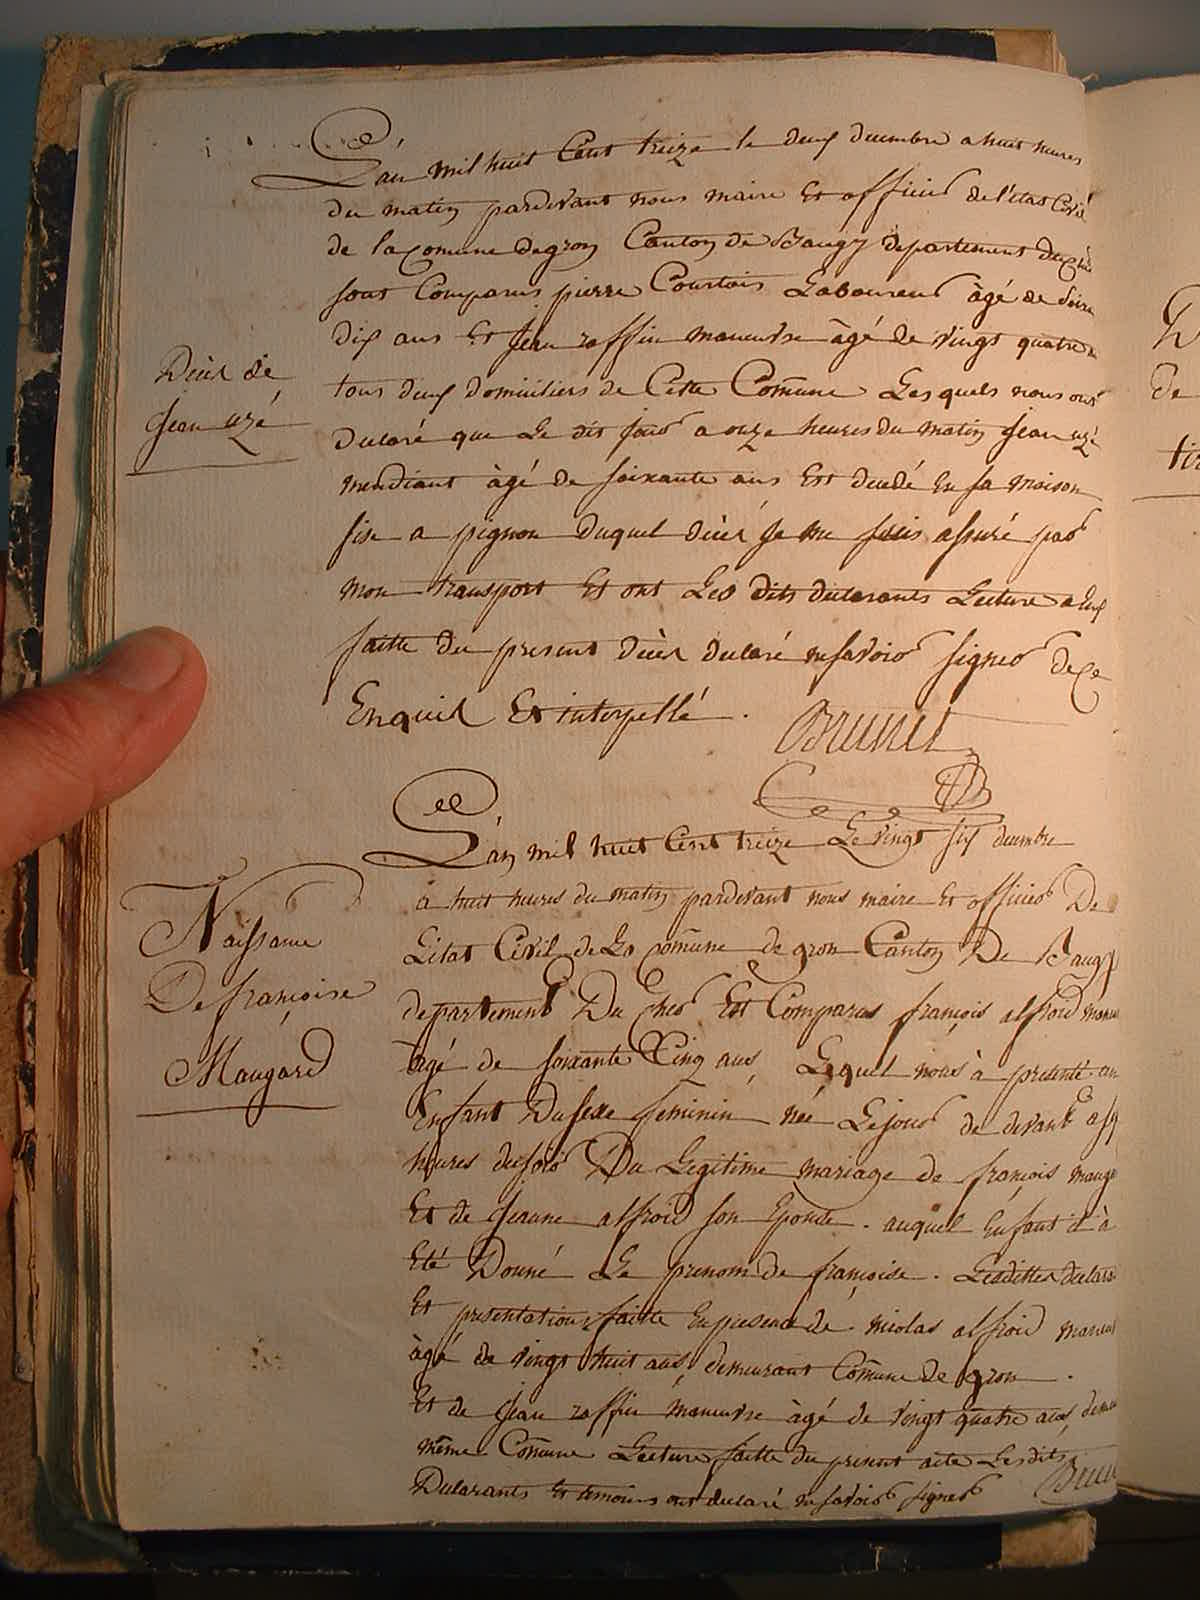 L'an mil huit Cent treize le deux decembre a huit heures
du matin pardevant nous maire Et officier de l'état Civil
de la Comune de gron Canton de Baugy departement du cher
sont Comparus pierre Courtois Laboureur âgé de soixante
dix ans Et Jean raffin maneuvre âgé de vingt quatre
tous deux domiciliers de Cette Comune Les quels nous ont
Declaré que Le dit jour a onze heures du matin Jean uzé
mendiant âgé de soixante ans Est décédé En sa maison
sise a pignon duquel décès Je me suis assuré par
mon transport Et ont Les dits declarants Lecture a Eux
faitte du present décès declaré ne savoir signer de ce
Enquis Et interpellé.
Brunet
Décès de
Jean uzé
L'an mil huit Cent treize Le vingt six decembre
a huit heures du matin pardevant nous maire Et officier De
L'état Civil de La Comune de gron Canton De Baugy
departement Du cher Est Comparus françois alfroid maneu
âgé de soixante Cinq ans, Lequel nous à presenté un
Enfant Du sexe feminin née Le jour de devant a six
heures du soir Du Legitime mariage de françois mauga
Et de Jeanne alfroid son Epouse. auquel Enfant il à
Eté Donné Le prenom de françoise. Lesdittes declara
Et presentation faitte En presence de nicolas alfroid maneu
âgé de vingt huit ans, demeurant Comune de gron.
Et de Jean raffin maneuvre âgé de vingt quatre ans, demeu
même Comune Lecture faitte du present acte Les dits
Declarants Et temoins ont declaré ne savoir signer
Brun
Naissance
De françoise
Maugard
De
de